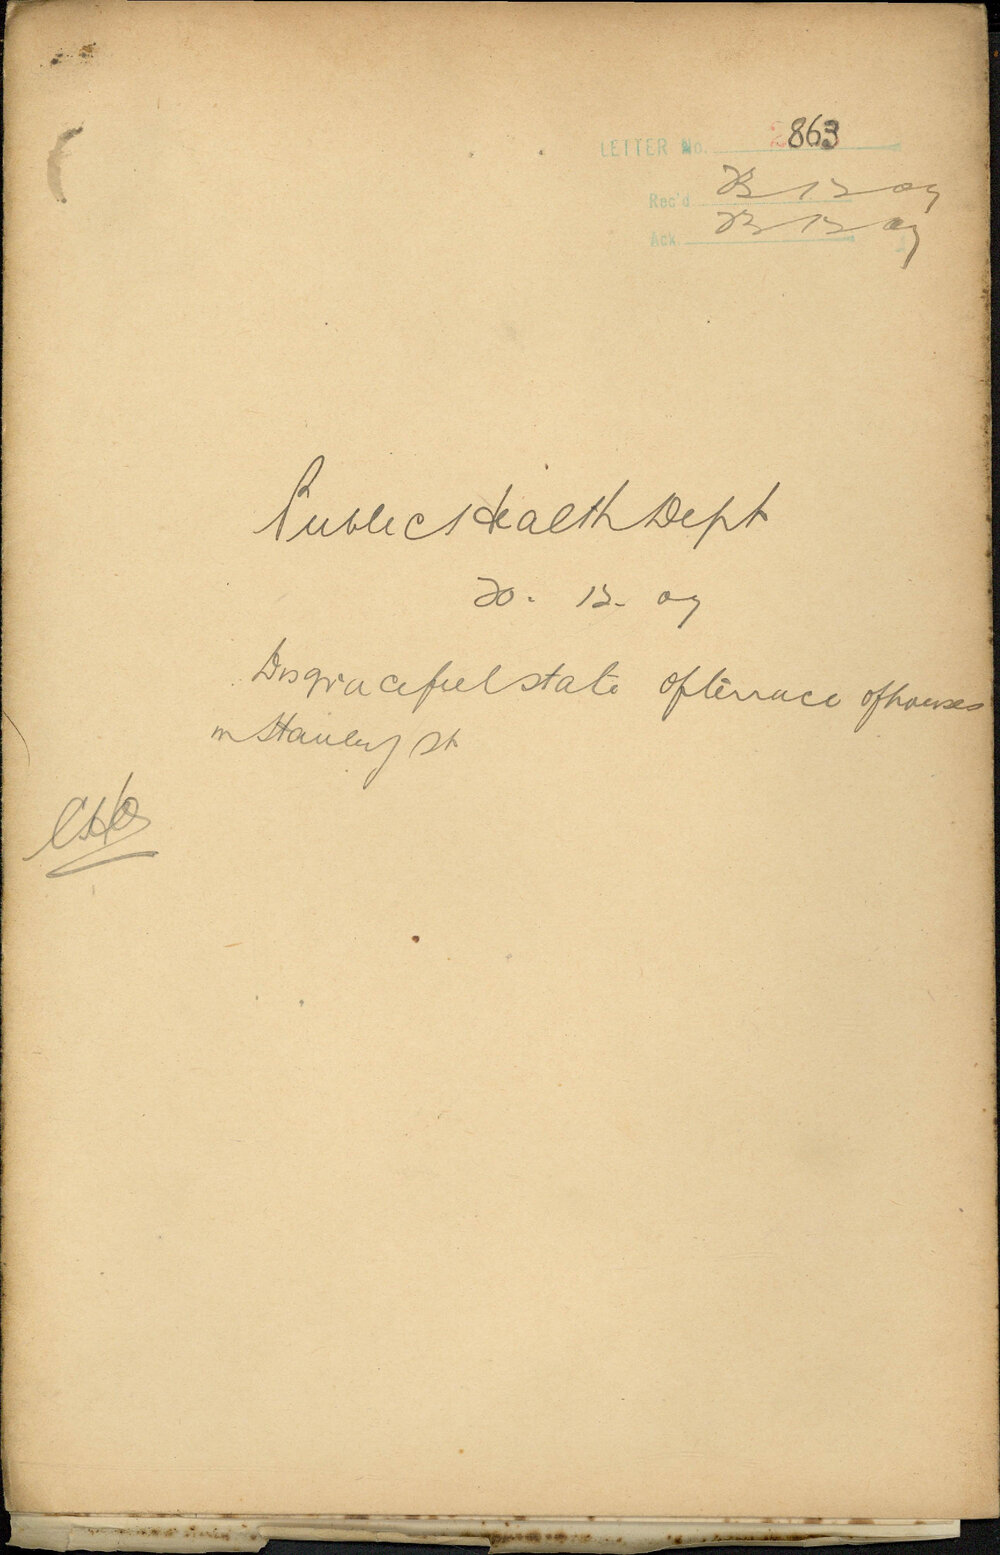 LETTER No. 2863
Rec'd 23 12 09
Ack. 23 12 09
Public Health Dept
20. 12. 09
Disgraceful state of terrace of houses
in Stanley St